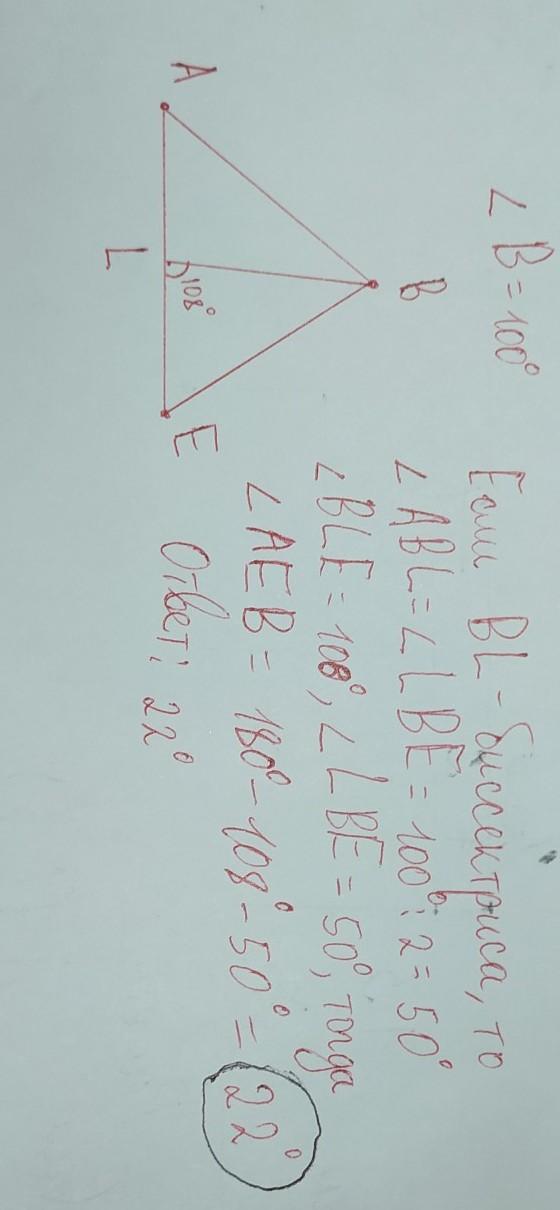 ∠ B = 100°
B
A
L
108°
E
Если BL - биссектриса, то
∠ ABL = ∠ LBE = 100° : 2 = 50°
∠ BLE = 108°, ∠ LBE = 50°, тогда
∠ AEB = 180° - 108° - 50° = 22°
Ответ: 22°